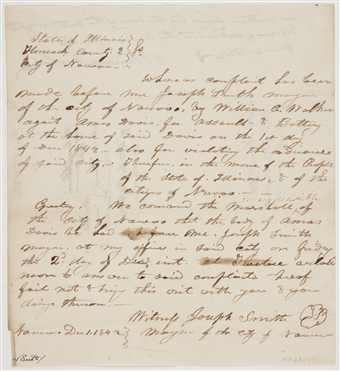 State of Illinois
Hancock County } Sc
City of Nauvoo
Whereas complaint has been
made before me Joseph Smith mayor
of the city of Nauvoo, by William C. Walker
against Amos Davis, for Assault & Battery
at the house of said Davis on the 1st day
of Dec 1842. also for violating the ordinances
of said city.— Therefore, in the name of the People
of the State of Illinois, & of the
citizens of Nauvoo.—
Greeting. We command the Marshall of
the City of Nauvoo that the body of Amos
Davis be had before me, Joseph Smith
mayor, at my office in said city on friday
the 2d day of Dec. inst. at Twelve o clock
noon to answer to said complaints hereof
fail not & bring this writ with you & your
doings thereon.—
Witness Joseph Smith
Nauvoo Dec 1. 1842 } Mayor of the city of Nauvoo